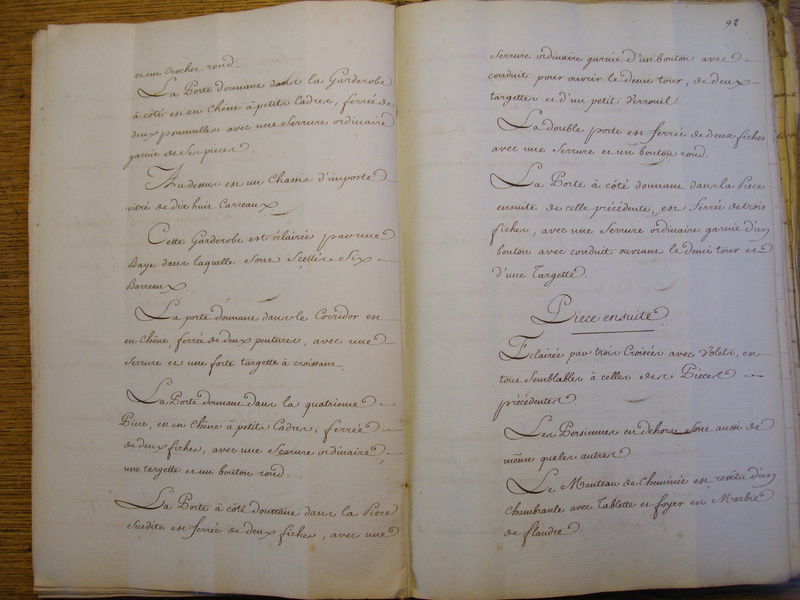 et un Crochet rond.
La Porte donnant dans la Garderobe
à côté est en Chêne à petits Cadres, ferrée de
deux pommelles avec une Serrure ordinaire
garnie de Ses pieces.
Au dessus est un Chassis d'imposte
vitré de dix huit Carreaux
Cette Garderobe est éclairée par une
Baye dans laquelle sont Scellés Six
Barreaux
La porte donnant dans le Corridor est
en Chêne, ferrée de deux pentures, avec une
Serrure et une forte targette à croissant.
La Porte donnant dans la quatrieme
Piece, est en Chêne à petits Cadres, ferrée
de deux fiches, avec une Serrure ordinaire,
une targette et un bouton rond.
La Porte à côté donnant dans la Piece
Susdite est ferrée de deux fiches, avec une
92
Serrure ordinaire garnie d'un bouton avec
conduit pour ouvrir le demi tour, de deux
targettes et d'un petit Verrouil.
La double porte est ferrée de deux fiches
avec une Serrure et un bouton rond.
La Porte à côté donnant dans la Piece
ensuite de celle précédente, est ferrée de trois
fiches, avec une Serrure ordinaire garnie d'un
bouton avec conduit ouvrant le demi tour et
d'une Targette.
Piece ensuite
Eclairée par trois Croisées avec Volets, en
tout Semblables à celles des Pieces
précédentes
Les Persiennes en dehors sont aussi de
même que les autres
Le Manteau de Cheminée est revêtu d'un
Chambranle avec Tablette et foyer en Marbre
de flandre